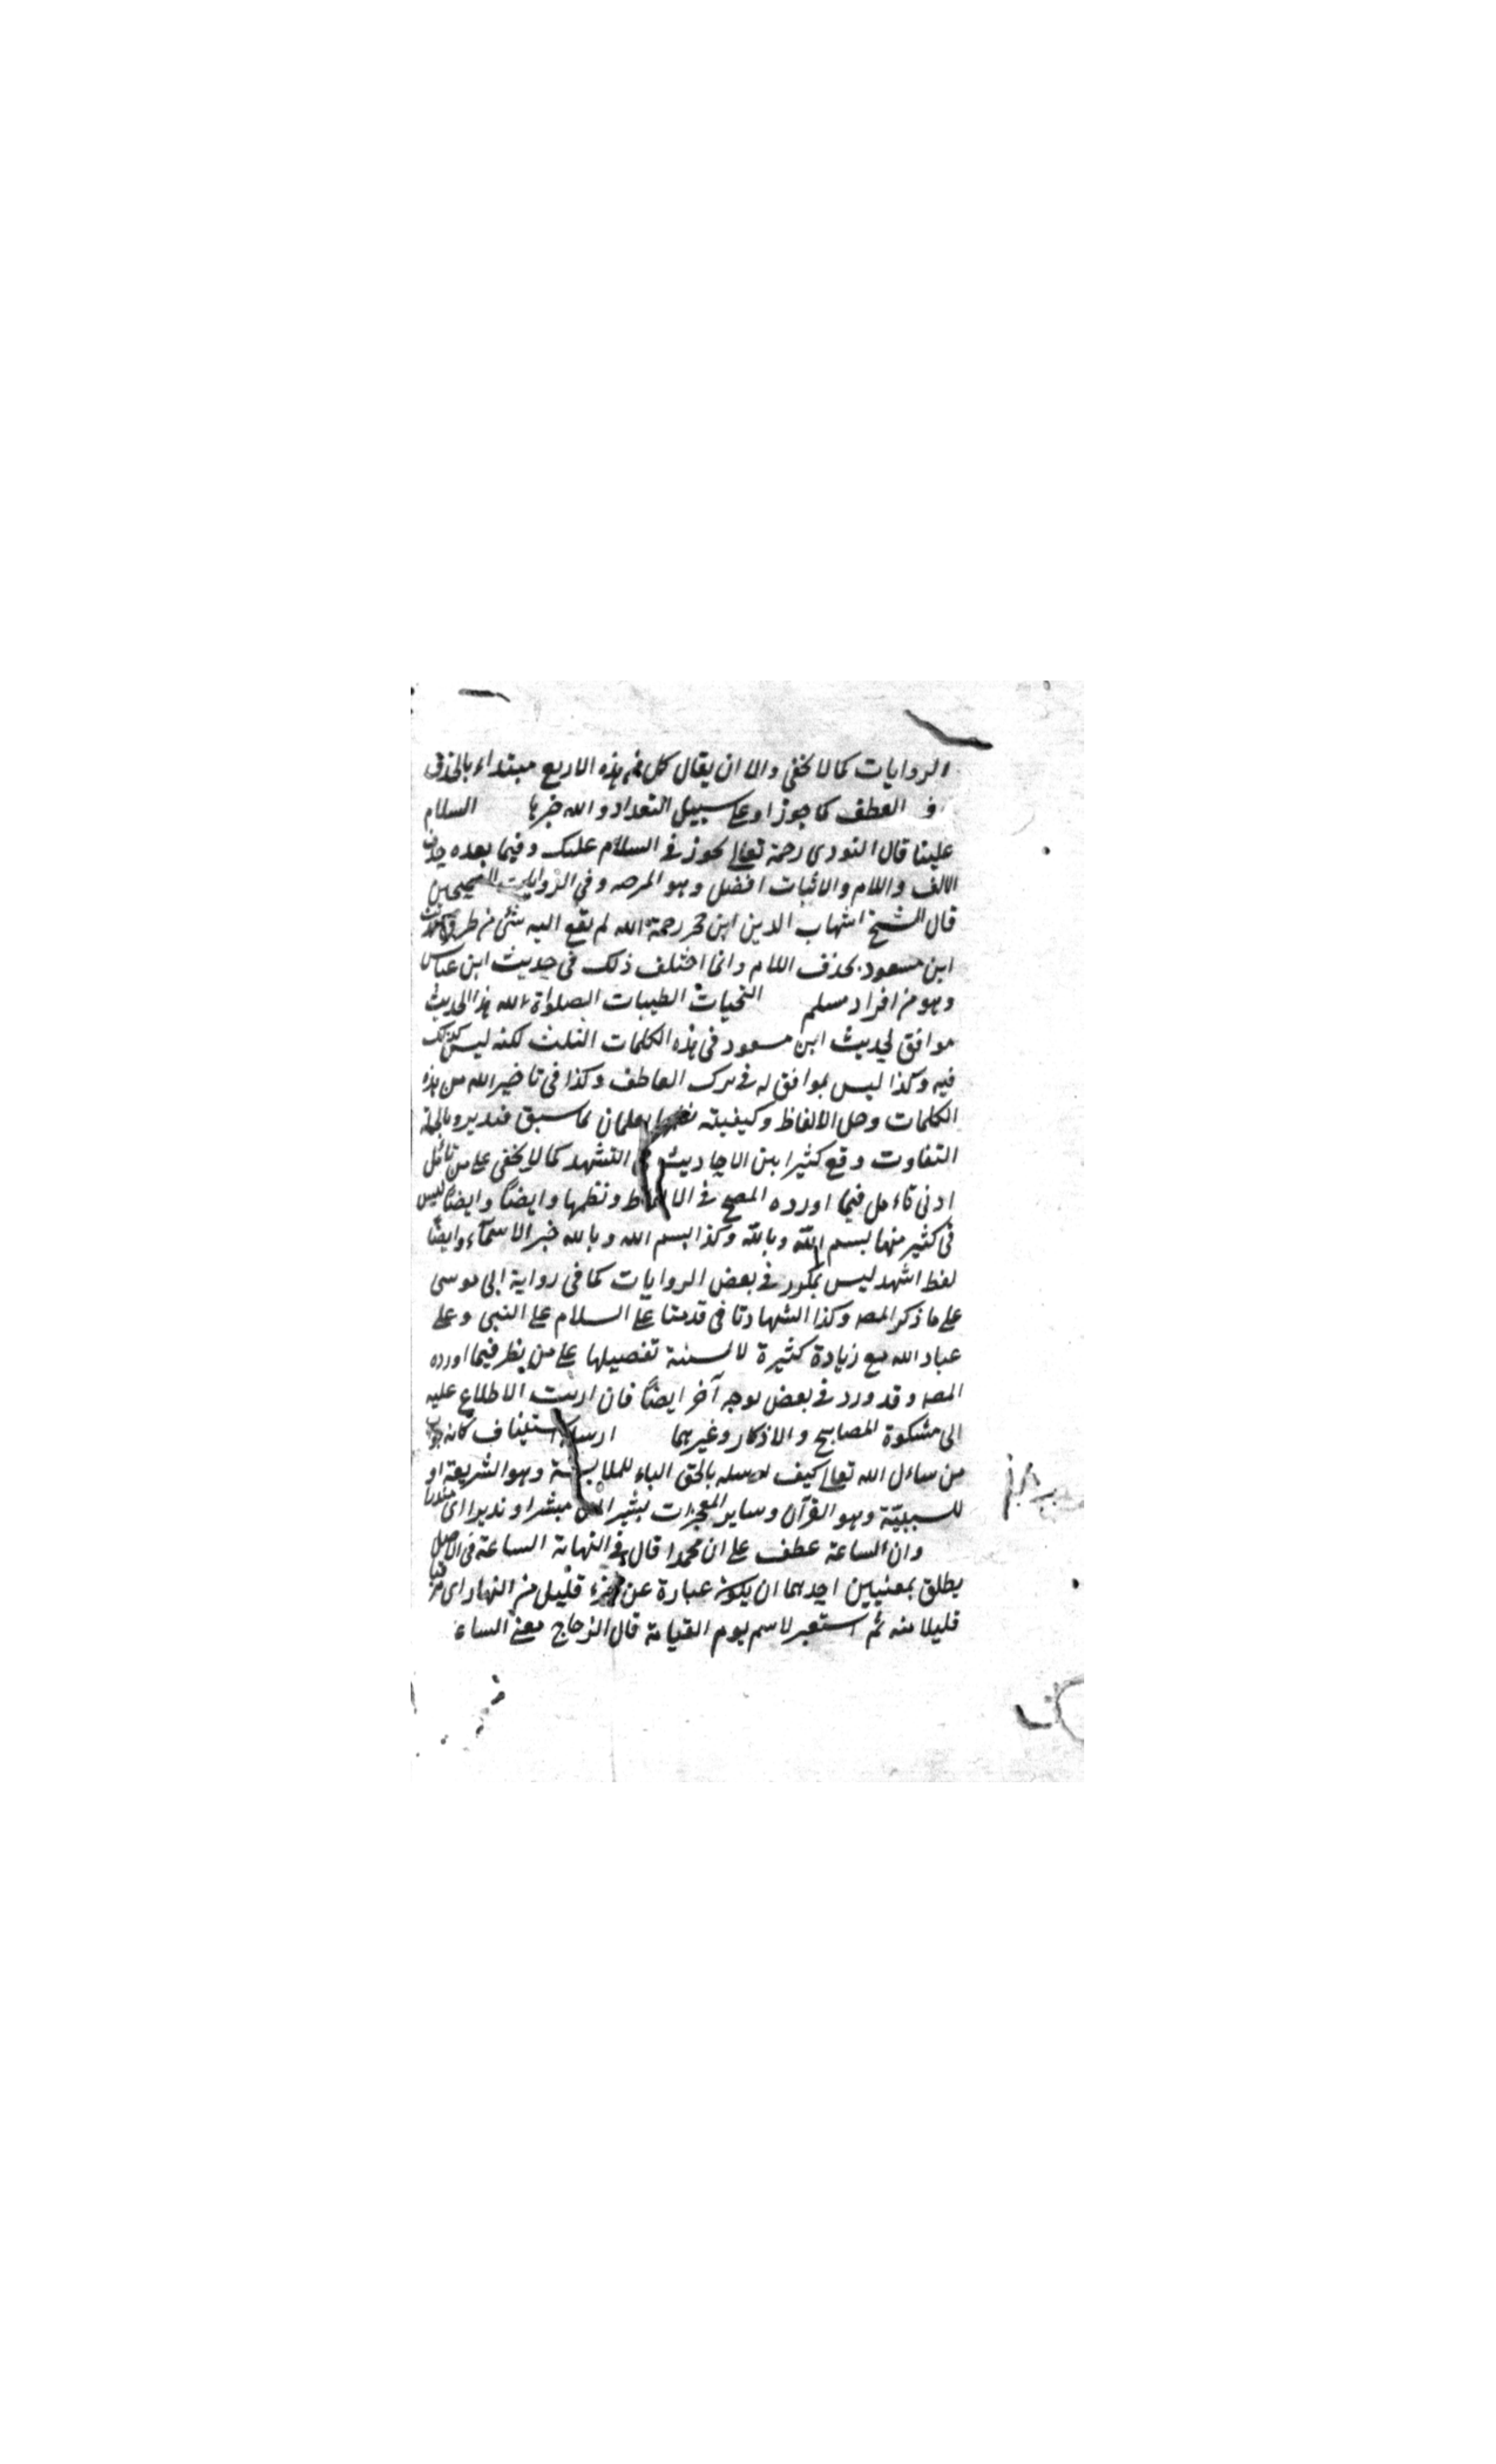 الروايات كما لا يخفى واما ان يقال كل من هذه الاربع مبتداء بالحذف
العطف كما جوز او على سبيل التعداد و الله خبرها السلام
علينا قال النووى رحمة تعالى يجوز فى السلام عليك وفيما بعده حذف
الالف واللام والاثبات افضل وهو المرصه وفى الروايات الصحيحين
قال الشيخ شهاب الدين ابن حجر رحمة الله لم تقع اليه شئ من طرق حديث
ابن مسعود بحذف اللام وانما اختلف ذلك فى حديث ابن عباس
وهو من افراد مسلم التحيات الطيبات الصلواة لله هذا الحديث
موافق لحديث ابن مسعود فى هذه الكلمات الثلث لكنه ليس كذلك
فيه وكذا ليس بموافق له فى ترك العاطف وكذا فى تاخير الله من هذه
الكلمات وحل الالفاظ وكيفيته نظمها يعلمان بما سبق فتدبر وبالجملة
التفاوت وقع كثيرا بين الاحاديث فى التشهد كما لا يخفى على من تأمل
ادنى تاءمل فيما اورده المصح فى الالفاظ ونظمها وايضًا وايضًا ليس
فى كثير منها بسم الله وبالله وكذا بسم الله وبالله خير الاسمآء وايضًا
لفظ اشهد ليس بمكرر فى بعض الروايات كما فى رواية ابى موسى
على ما ذكر المصه وكذا الشهادتا فى قدمتا على السلام على النبى وعلى
عباد الله مع زيادة كثيرة لا تفصيلها على من ينظر فيما اورده
المصه وقد ورد فى بعض بوجه آخر ايضًا فان اردت الاطلاع عليه
الى مشكوة المصابيح والاذكار وغيرهما ارسله استيناف كانه جواب
من ساءل الله تعالى كيف ارسله بالحق الباء للملابسة وهو الشريعة او
للسببيّة وهو القرآن وساير المعجزات بشيرا اى مبشرا ونذيرا اى منذرا
وان الساعة عطف على ان محمدا قال فى النهاية الساعة فى الاصل
يطلق بمعنيين احدهما ان يكون عبارة عن جزء قليل من النهار اى
قليلا منه ثم استعير لاسم يوم القيامة قال الزجاج معنى الساء